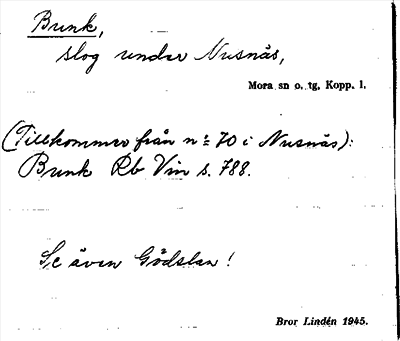 Bunk,
slog under Nusnäs,
Mora sn o. tg, Kopp. l.
(Tillkommer från n:o 70 i Nusnäs):
Bunk Rb Vin s. 788.
Se även Gödslan!
Bror Lindén 1945.